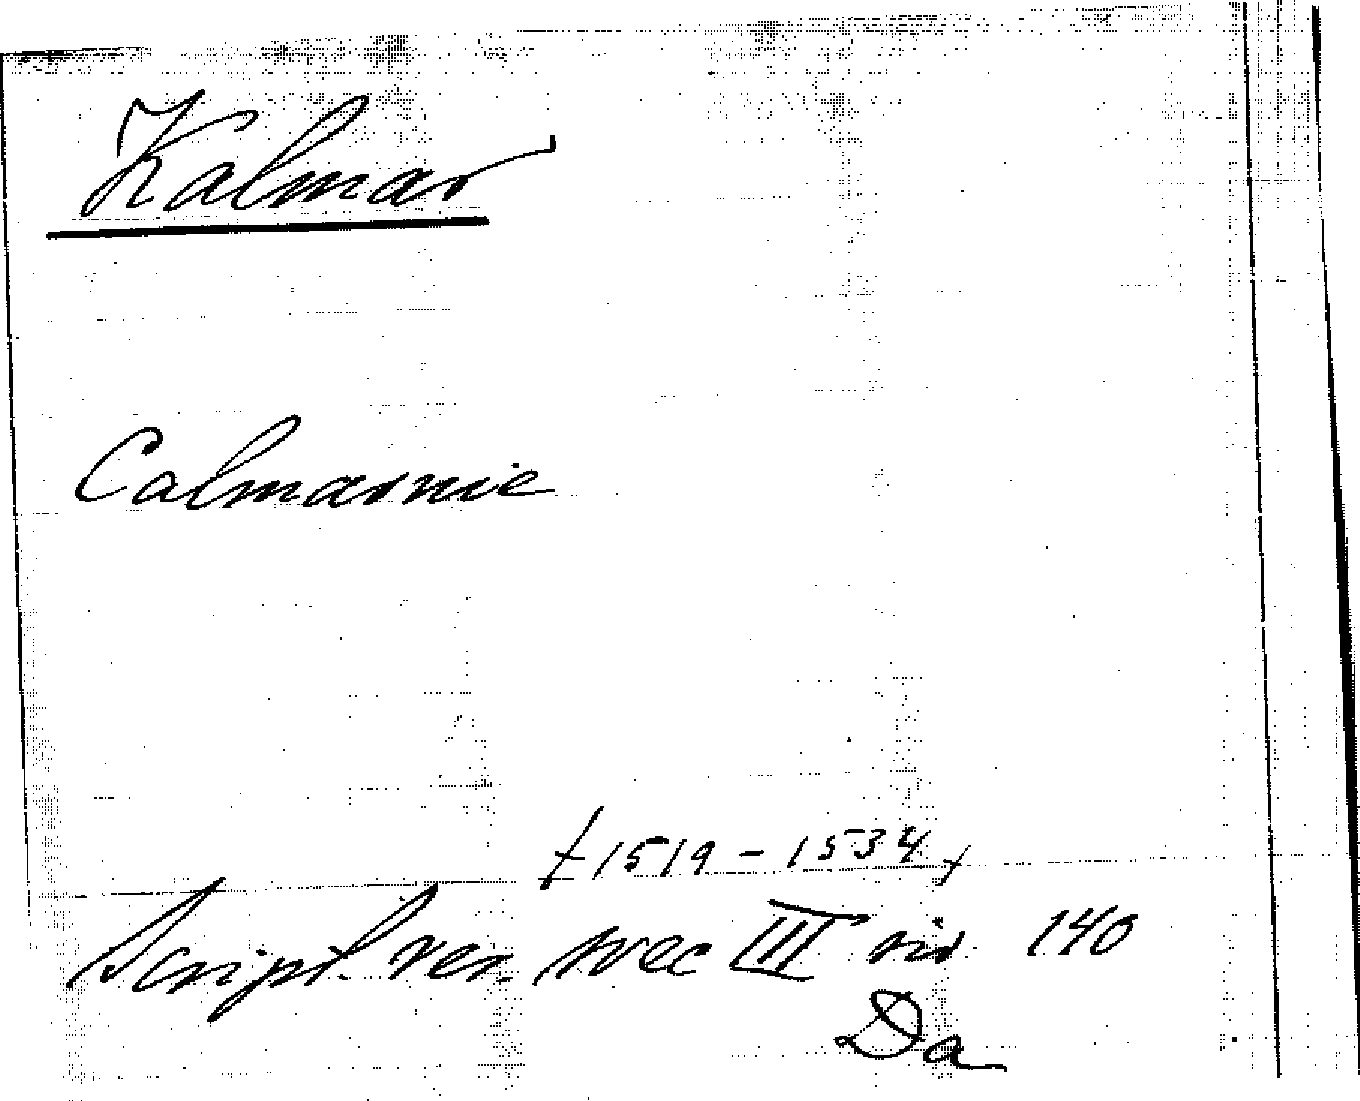 Kalmar
Calmarnie
(1519-1534)
Script. rer. svec III sid. 140
Da